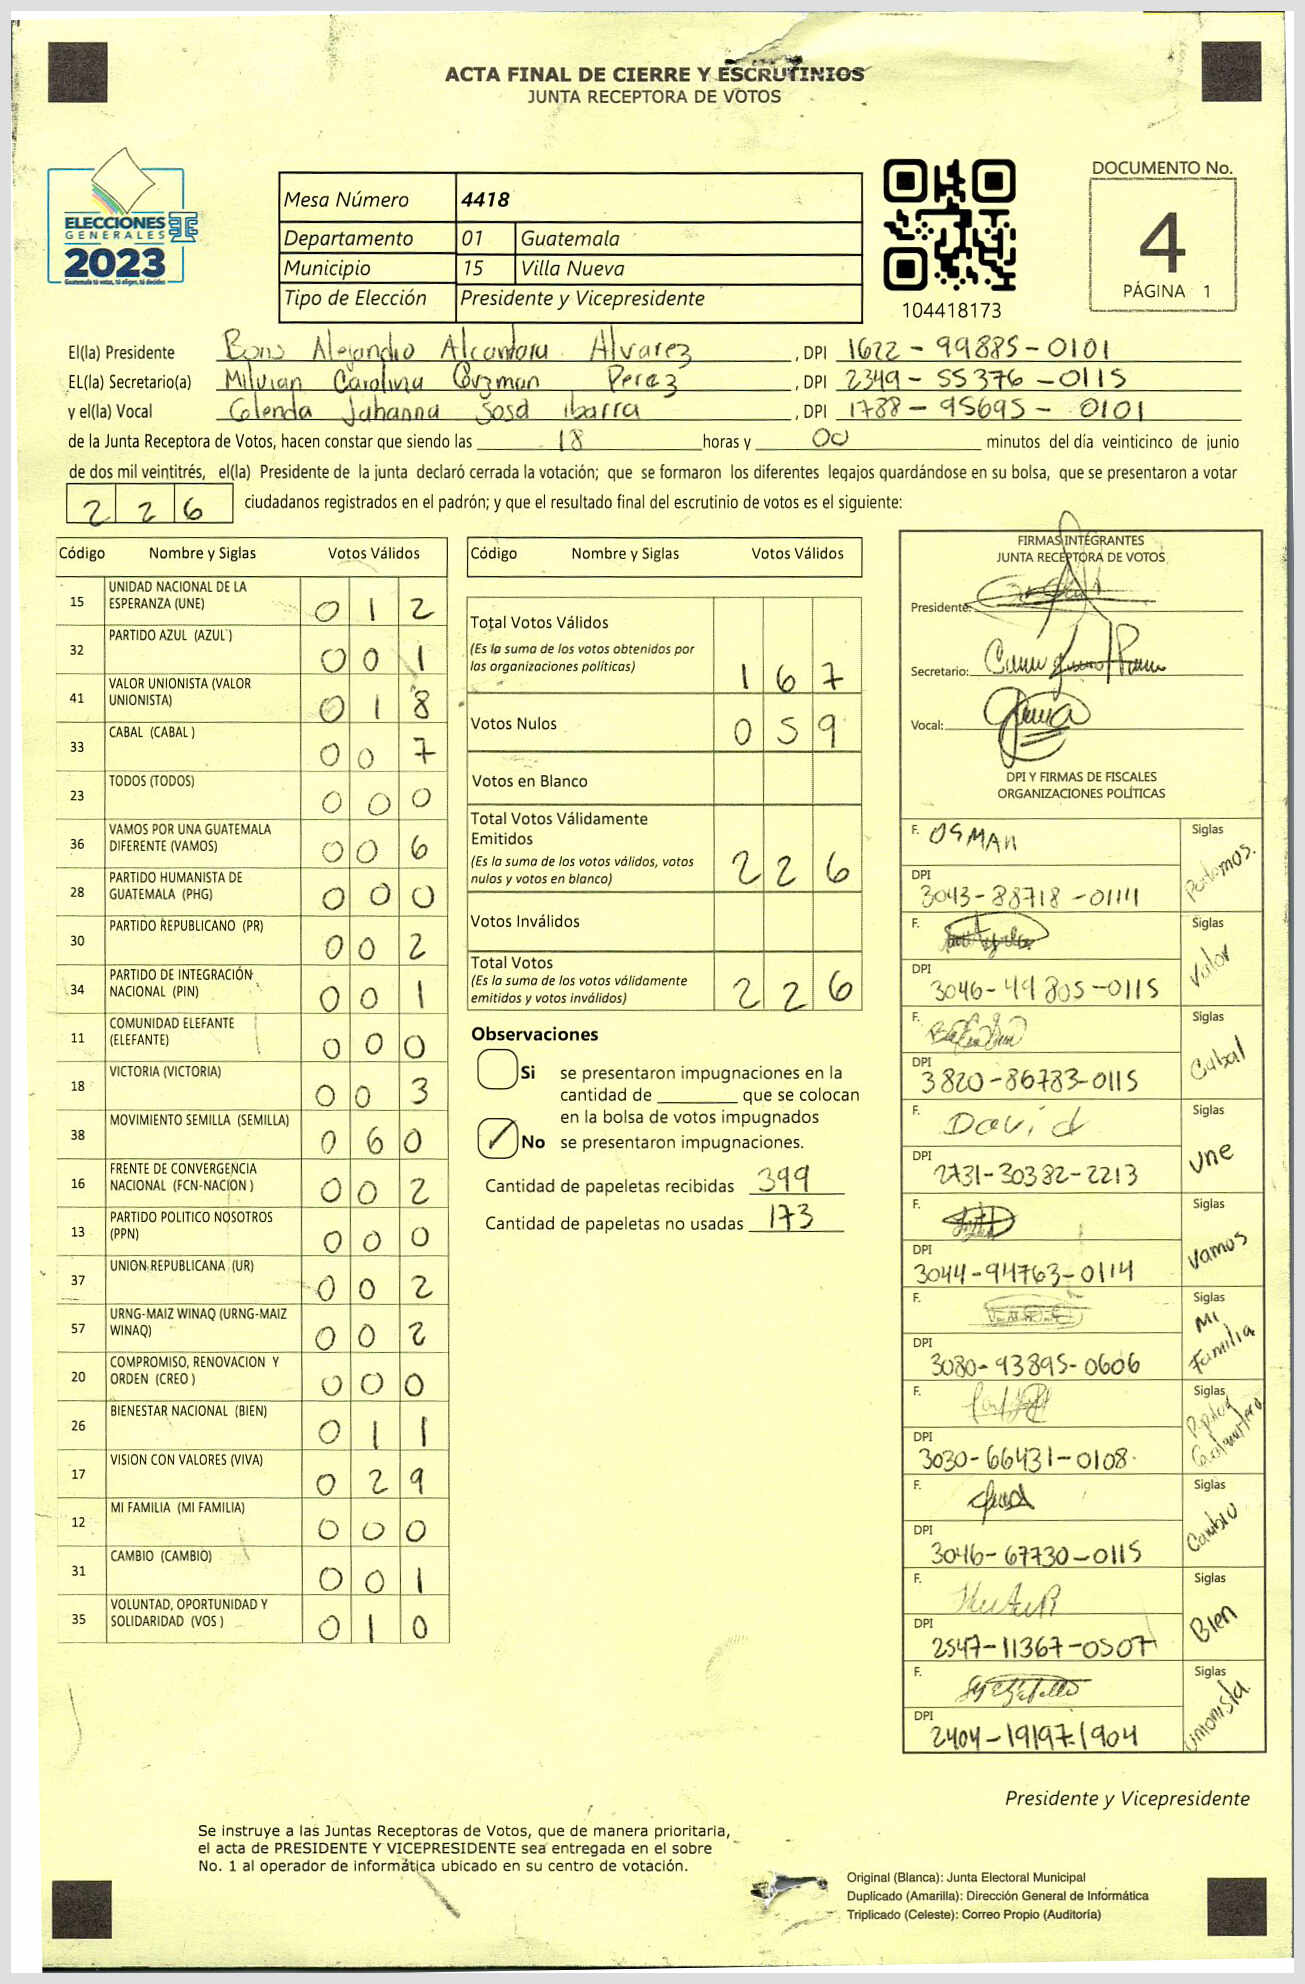 ACTA FINAL DE CIERRE Y ESCRUTINIOS
JUNTA RECEPTORA DE VOTOS
ELECCIONES
GENERALES
2023
Guatemala tú votas, tú eliges, tú decides
Mesa Número 4418
Departamento 01 Guatemala
Municipio 15 Villa Nueva
Tipo de Elección Presidente y Vicepresidente
104418173
DOCUMENTO No.
4
PÁGINA 1
El(la) Presidente Boris Alejandro Alcantara Alvarez, DPI 1622-99885-0101
EL(la) Secretario(a) Milvian Carolina Guzman Perez, DPI 2349-55376-0115
y el(la) Vocal Glenda Johanna Sosa Ibarra, DPI 1788-95695-0101
de la Junta Receptora de Votos, hacen constar que siendo las 18 horas y 00 minutos del día veinticinco de junio
de dos mil veintitrés, el(la) Presidente de la junta declaró cerrada la votación; que se formaron los diferentes legajos quardándose en su bolsa, que se presentaron a votar
226 ciudadanos registrados en el padrón; y que el resultado final del escrutinio de votos es el siguiente:
Código Nombre y Siglas Votos Válidos
15 UNIDAD NACIONAL DE LA ESPERANZA (UNE) 012
32 PARTIDO AZUL (AZUL) 001
41 VALOR UNIONISTA (VALOR UNIONISTA) 018
33 CABAL (CABAL) 007
23 TODOS (TODOS) 000
36 VAMOS POR UNA GUATEMALA DIFERENTE (VAMOS) 006
28 PARTIDO HUMANISTA DE GUATEMALA (PHG) 000
30 PARTIDO REPUBLICANO (PR) 002
34 PARTIDO DE INTEGRACIÓN NACIONAL (PIN) 001
11 COMUNIDAD ELEFANTE (ELEFANTE) 000
18 VICTORIA (VICTORIA) 003
38 MOVIMIENTO SEMILLA (SEMILLA) 060
16 FRENTE DE CONVERGENCIA NACIONAL (FCN-NACION) 002
13 PARTIDO POLITICO NOSOTROS (PPN) 000
37 UNION REPUBLICANA (UR) 002
57 URNG-MAIZ WINAQ (URNG-MAIZ WINAQ) 002
20 COMPROMISO, RENOVACION Y ORDEN (CREO) 000
26 BIENESTAR NACIONAL (BIEN) 011
17 VISION CON VALORES (VIVA) 029
12 MI FAMILIA (MI FAMILIA) 000
31 CAMBIO (CAMBIO) 001
35 VOLUNTAD, OPORTUNIDAD Y SOLIDARIDAD (VOS) 010
Código Nombre y Siglas Votos Válidos
Total Votos Válidos
(Es la suma de los votos obtenidos por las organizaciones políticas) 167
Votos Nulos 059
Votos en Blanco
Total Votos Válidamente Emitidos
(Es la suma de los votos válidos, votos nulos y votos en blanco) 226
Votos Inválidos
Total Votos
(Es la suma de los votos válidamente emitidos y votos inválidos) 226
Observaciones
Si se presentaron impugnaciones en la
cantidad de ________ que se colocan
en la bolsa de votos impugnados
No se presentaron impugnaciones.
Cantidad de papeletas recibidas 399
Cantidad de papeletas no usadas 173
FIRMAS INTEGRANTES
JUNTA RECEPTORA DE VOTOS
Presidente:
Secretario:
Vocal:
DPI Y FIRMAS DE FISCALES
ORGANIZACIONES POLÍTICAS
F. OSMAN Siglas Podemos.
DPI 3043-88718-0114
F. Siglas Valor
DPI 3046-49805-0115
F. Siglas Cabal
DPI 3820-86783-0115
F. David Siglas Une
DPI 2731-30382-2213
F. Siglas Vamos
DPI 3044-94763-0114
F. Siglas Mi Familia
DPI 3080-93895-0606
F. Siglas
DPI 3030-66431-0108
F. Siglas Cambio
DPI 3046-67730-0115
F. Siglas Bien
DPI 2547-11367-0507
F. Siglas Unionista
DPI 2404-19197-1904
Presidente y Vicepresidente
Se instruye a las Juntas Receptoras de Votos, que de manera prioritaria,
el acta de PRESIDENTE Y VICEPRESIDENTE sea entregada en el sobre
No. 1 al operador de informática ubicado en su centro de votación.
Original (Blanca): Junta Electoral Municipal
Duplicado (Amarilla): Dirección General de Informática
Triplicado (Celeste): Correo Propio (Auditoría)